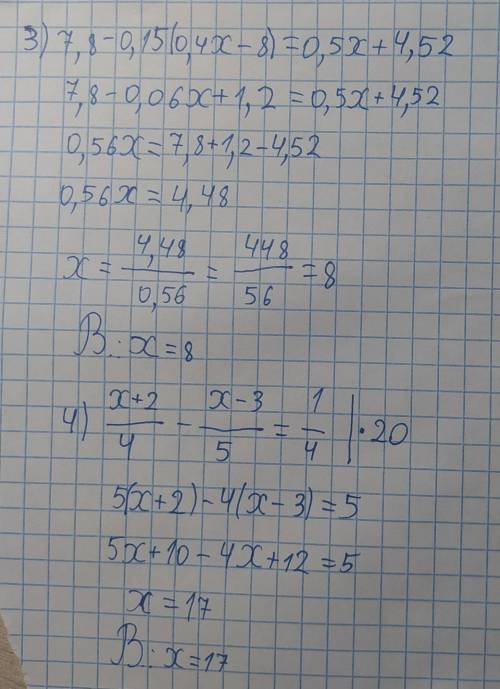 3) 7,8-0,15(0,4x-8)=0,5x+4,52
7,8-0,06x+1,2=0,5x+4,52
0,56x=7,8+1,2-4,52
0,56x=4,48
x = 4,48/0,56 = 448/56 = 8
В: x=8
4) x+2/4 - x-3/5 = 1/4 |·20
5(x+2)-4(x-3)=5
5x+10-4x+12=5
x=17
В: x=17